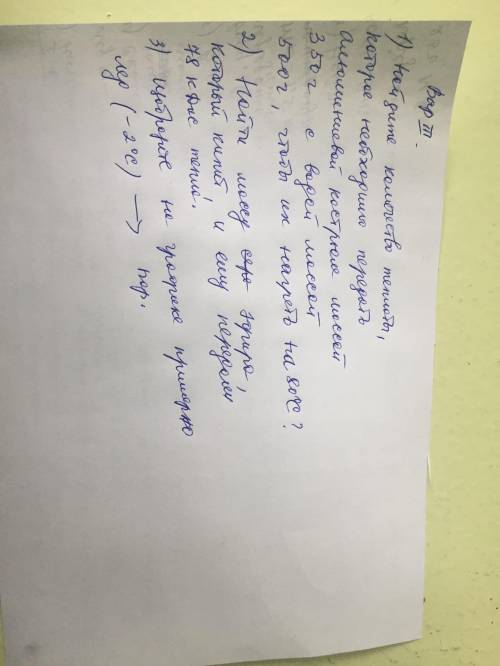 Вар III.
1) Найдите количество теплоты,
которое необходимо передать
алюминиевой кастрюле массой
350г с водой массой
500г, чтобы их нагреть на 80°С?
2) Найти массу эфира,
который кипит, и ему передали
78 кДж тепла.
3) Изобразите на графике примерно
лед (-2°С) → пар.